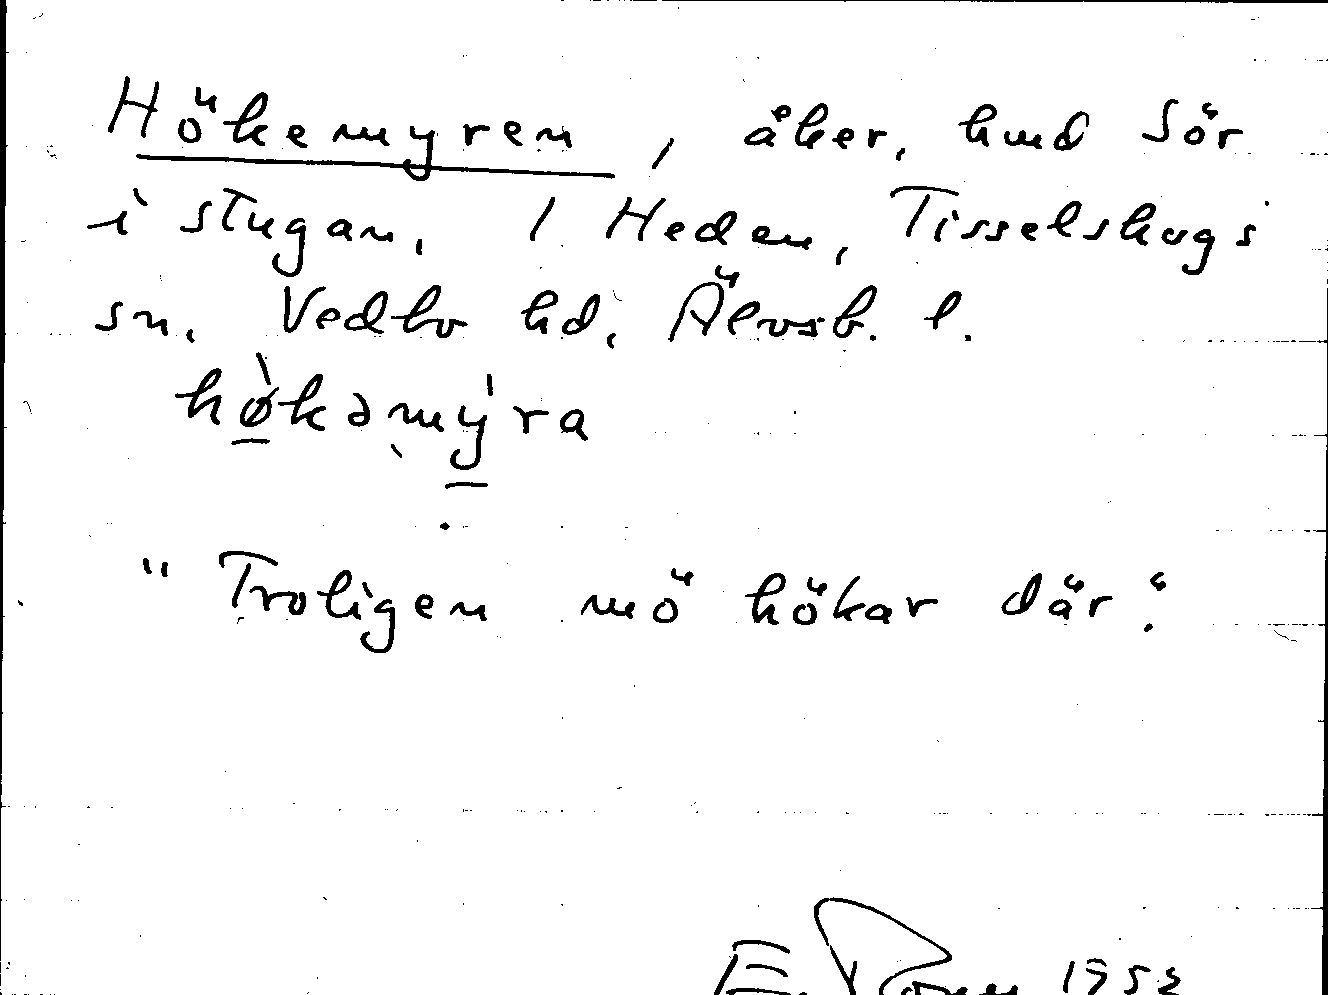 Hökemyren, åker, hmd Sör
i stugan, 1 Heden, Tisselskogs
sn, Vedbo hd, Älvsb. l.
hø̀kəmýra
"Troligen mö hökar där".
E. 1953